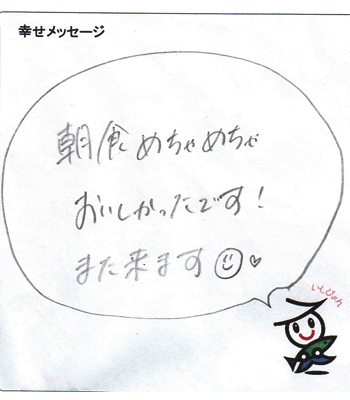 幸せメッセージ
朝食めちゃめちゃ
おいしかったです！
また来ます☺♡
いとぴょん